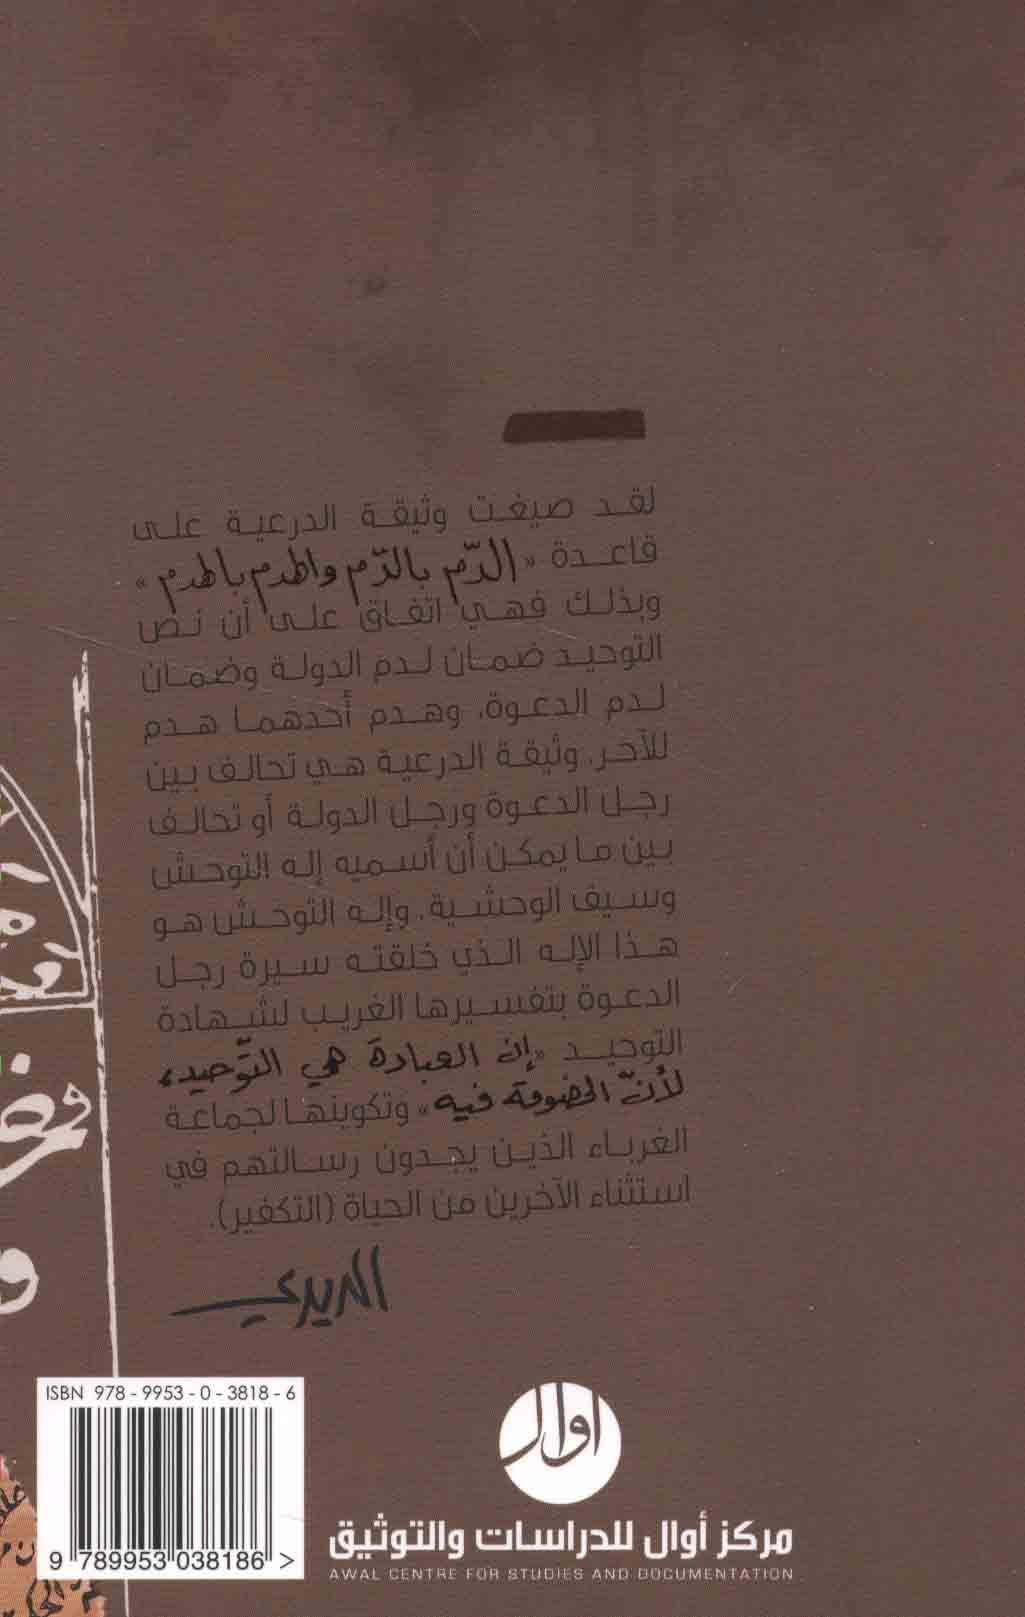 لقد صيغت وثيقة الدرعية على
قاعدة «الدّم بالدّم والهدم بالهدم»
وبذلك فهي اتفاق على أن نص
التوحيد ضمان لدم الدولة وضمان
لدم الدعوة، وهدم أحدهما هدم
للآخر. وثيقة الدرعية هي تحالف بين
رجل الدعوة ورجل الدولة أو تحالف
بين ما يمكن أن أسميه إله التوحش
وسيف الوحشية. وإله التوحش هو
هذا الإله الذي خلقته سيرة رجل
الدعوة بتفسيرها الغريب لشهادة
التوحيد «إن العبادة هي التّوحيد،
لأنّ الخصومة فيه» وتكوينها لجماعة
الغرباء الذين يجدون رسالتهم في
استثناء الآخرين من الحياة (التكفير).
الديري
ISBN 978 - 9953 - 0 - 3818 - 6
9 789953 038186 >
أوال
مركز أوال للدراسات والتوثيق
AWAL CENTRE FOR STUDIES AND DOCUMENTATION